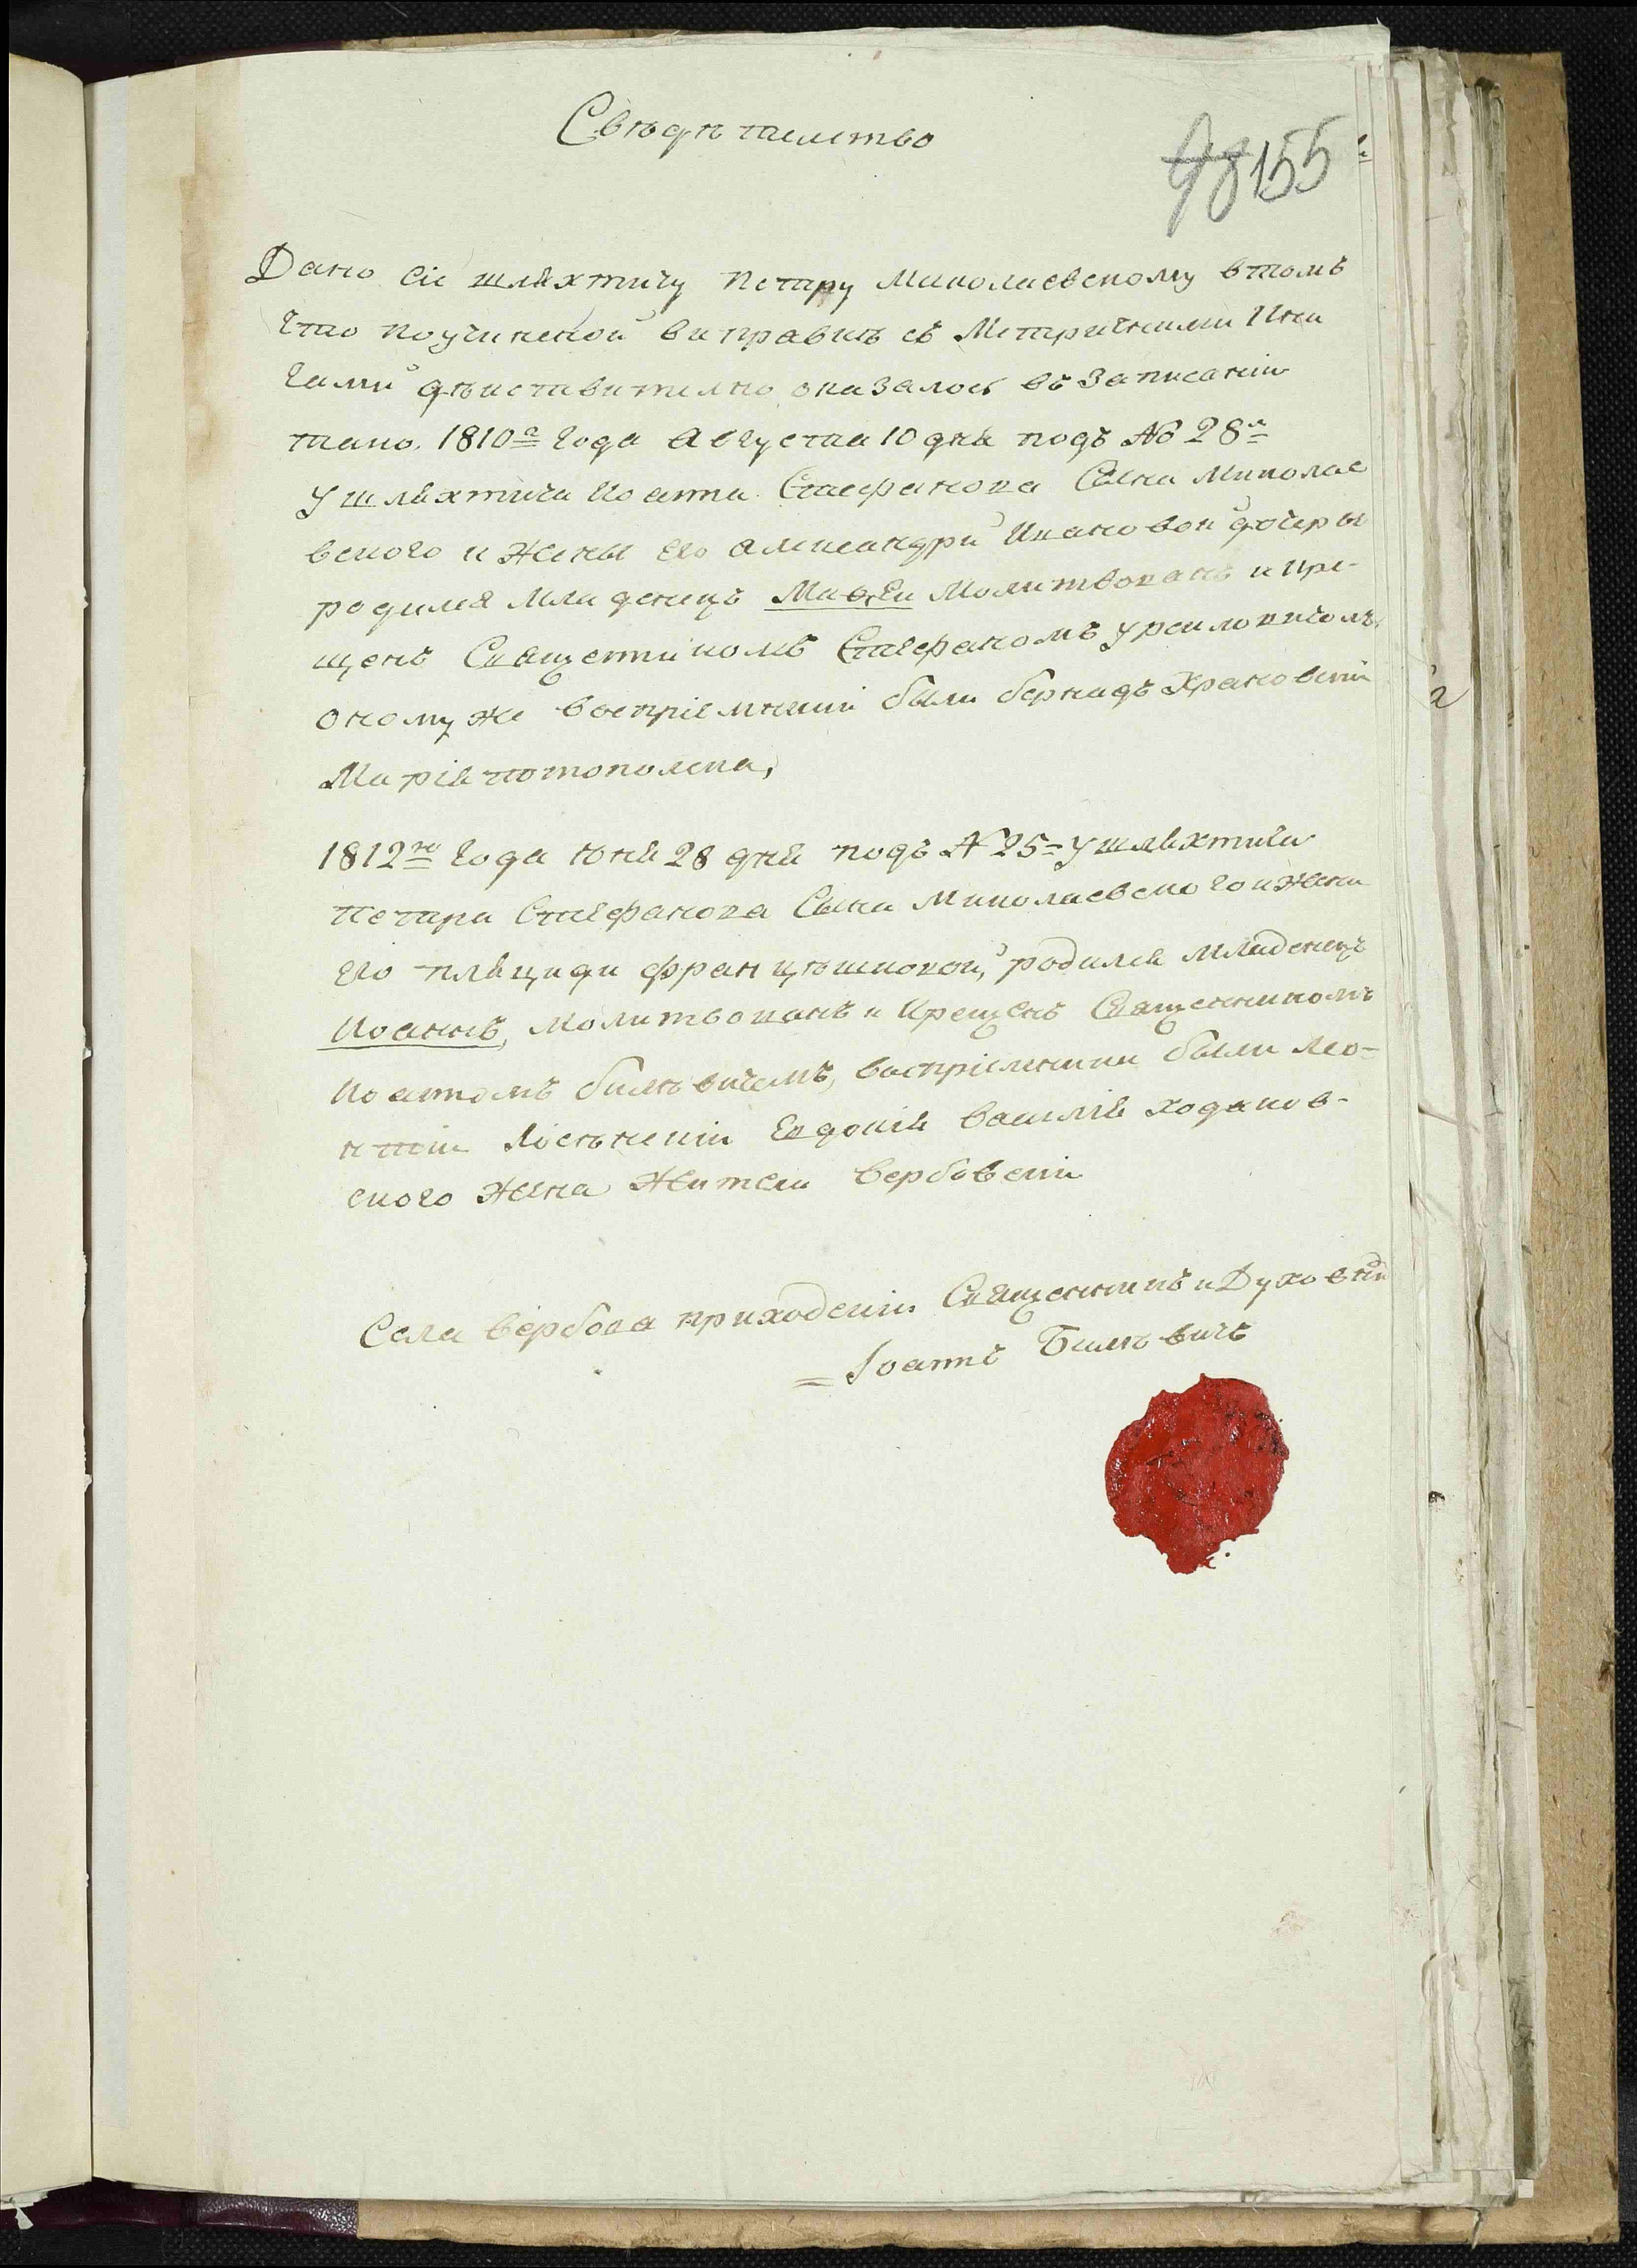 Свѣдѣтелство
98 155
Дано сіе шляхтичу Петру Миколаевскому втомъ
Что поучиненой виправкѣ съ Метричними Кни
гами дѣиставително оказалось въ записаніи
тако. 1810го года августа 10 дня подъ № 28м
у шляхтича Иоанна Стефанова Сына Миколае
вского и жены его александри Ивановой дочеры
родился младенецъ Мавѳеи Молитвованъ и кре-
щенъ Священникомъ Стефаномъ
ономуже воспріемники были Краковскій
Марія потополска,
1812го года юня 28 дня подъ № 25= у шляхтича
Петра Стефанова Сына Миколаевского и жени
его пляциди францѣшковой, родился младенецъ
Иоаннъ, молитвованъ и крещенъ Священникомъ
Иоанномъ билѣвичемъ, воспріемники были Лео-
нтіи Ясѣнскіи Евдокія василія ходаков-
ского жена жители вербовскіи
Села вербова приходскіи Священникъ и Духовній
= Іоаннъ Билѣвичъ